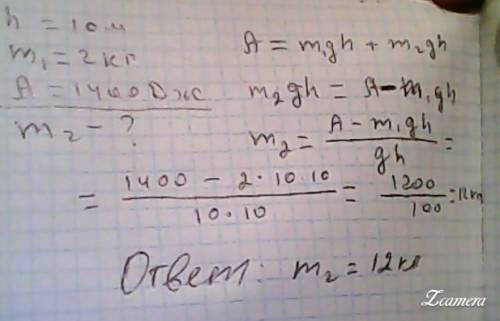 h = 10 м
m₁ = 2 кг
A = 1400 Дж
m₂ - ?
A = m₁gh + m₂gh
m₂gh = A - m₁gh
m₂ = (A - m₁gh) / gh =
= (1400 - 2·10·10) / (10·10) = 1200 / 100 = 12 кг
Ответ: m₂ = 12 кг
Zcamera